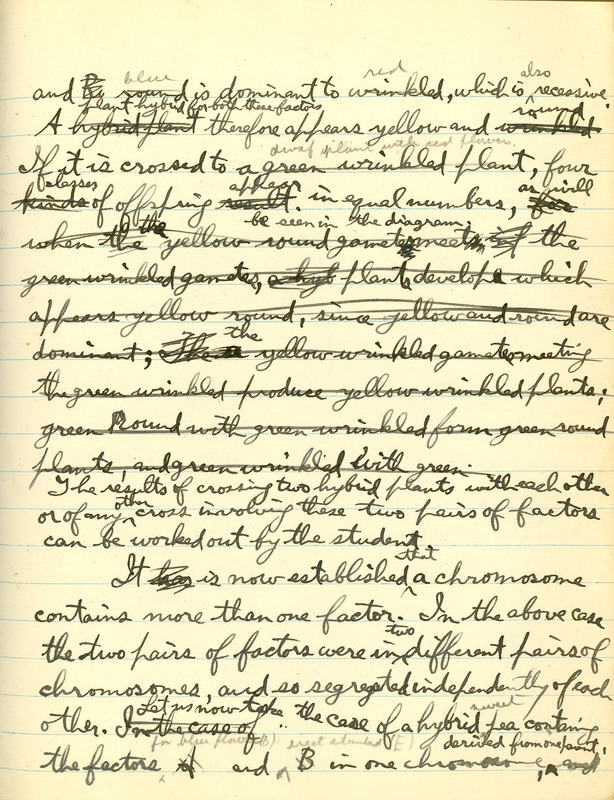 blue red also
and Ro round is dominant to wrinkled, which is recessive.
plant hybrid for both these factors round
A hybrid plant therefore appears yellow and wrinkled
dwarf plant with red flowers.
If it is crossed to a green wrinkled plant, four
classes appear as will
kinds of offspring result in equal numbers, for
be seen in the diagram.
when the the yellow round gametes meets the
green wrinkled gametes, a hyb plant develops which
appears yellow round, since yellow and round are
dominant; the yellow wrinkled gametes meeting
the green wrinkled produce yellow wrinkled plants;
green Round with green wrinkled form green round
plants, and green wrinkled with green.
The results of crossing two hybrid plants with each other
or of any other cross involving these two pairs of factors
can be worked out by the student
It has is now established that a chromosome
contains more than one factor. In the above case
the two pairs of factors were in two different pairs of
chromosomes, and so segregated independently of each
Let us now take sweet
other. In the case of the case of a hybrid pea containing
for blue flowers (B) erect standard (E) derived from one parent,
the factors and B in one chromosome, and